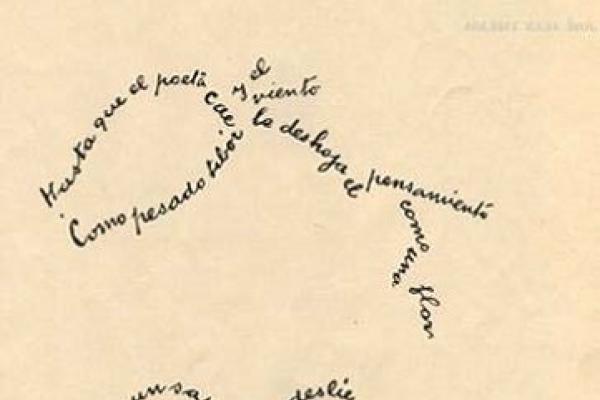 Hasta que el poeta
cae
Como pesado tibor
y el
viento
le deshoja el
pensamiento
como
una
flor